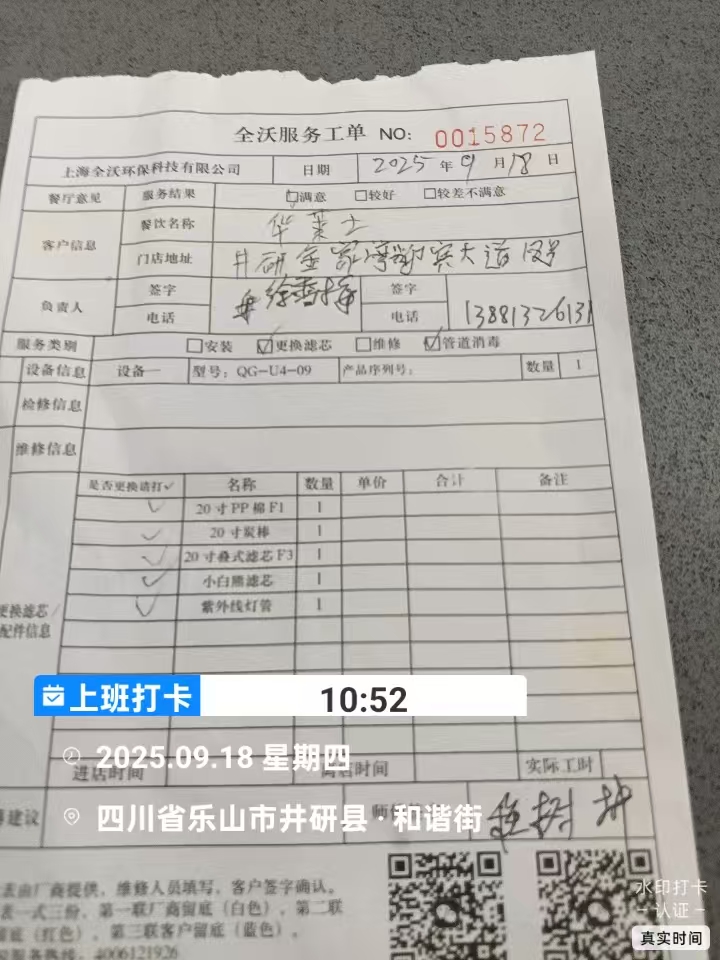 全沃服务工单 NO: 0015872
上海全沃环保科技有限公司 日期 2025 年 9 月 18 日
餐厅意见 服务结果 满意 较好 较差不满意
客户信息 餐饮名称 华莱士
门店地址 井研 大道
负责人 签字 签字
电话 电话 13881326131
服务类别 安装 更换滤芯 维修 管道消毒
设备信息 设备一 型号：QG-U4-09 产品序列号： 数量 1
检修信息
维修信息
是否更换请打✓ 名称 数量 单价 合计 备注
✓ 20寸PP棉F1 1
✓ 20寸炭棒 1
✓ 20寸叠式滤芯F3 1
✓ 小白熊滤芯 1
✓ 紫外线灯管 1
更换滤芯/
配件信息
上班打卡 10:52
2025.09.18 星期四
进店时间 离店时间 实际工时
四川省乐山市井研县·和谐街
建议
表由厂商提供，维修人员填写，客户签字确认。
表一式三份，第一联厂商留底（白色），第二联
留底（红色），第三联客户留底（蓝色）。
服务热线：4006121926
水印打卡
认证
真实时间